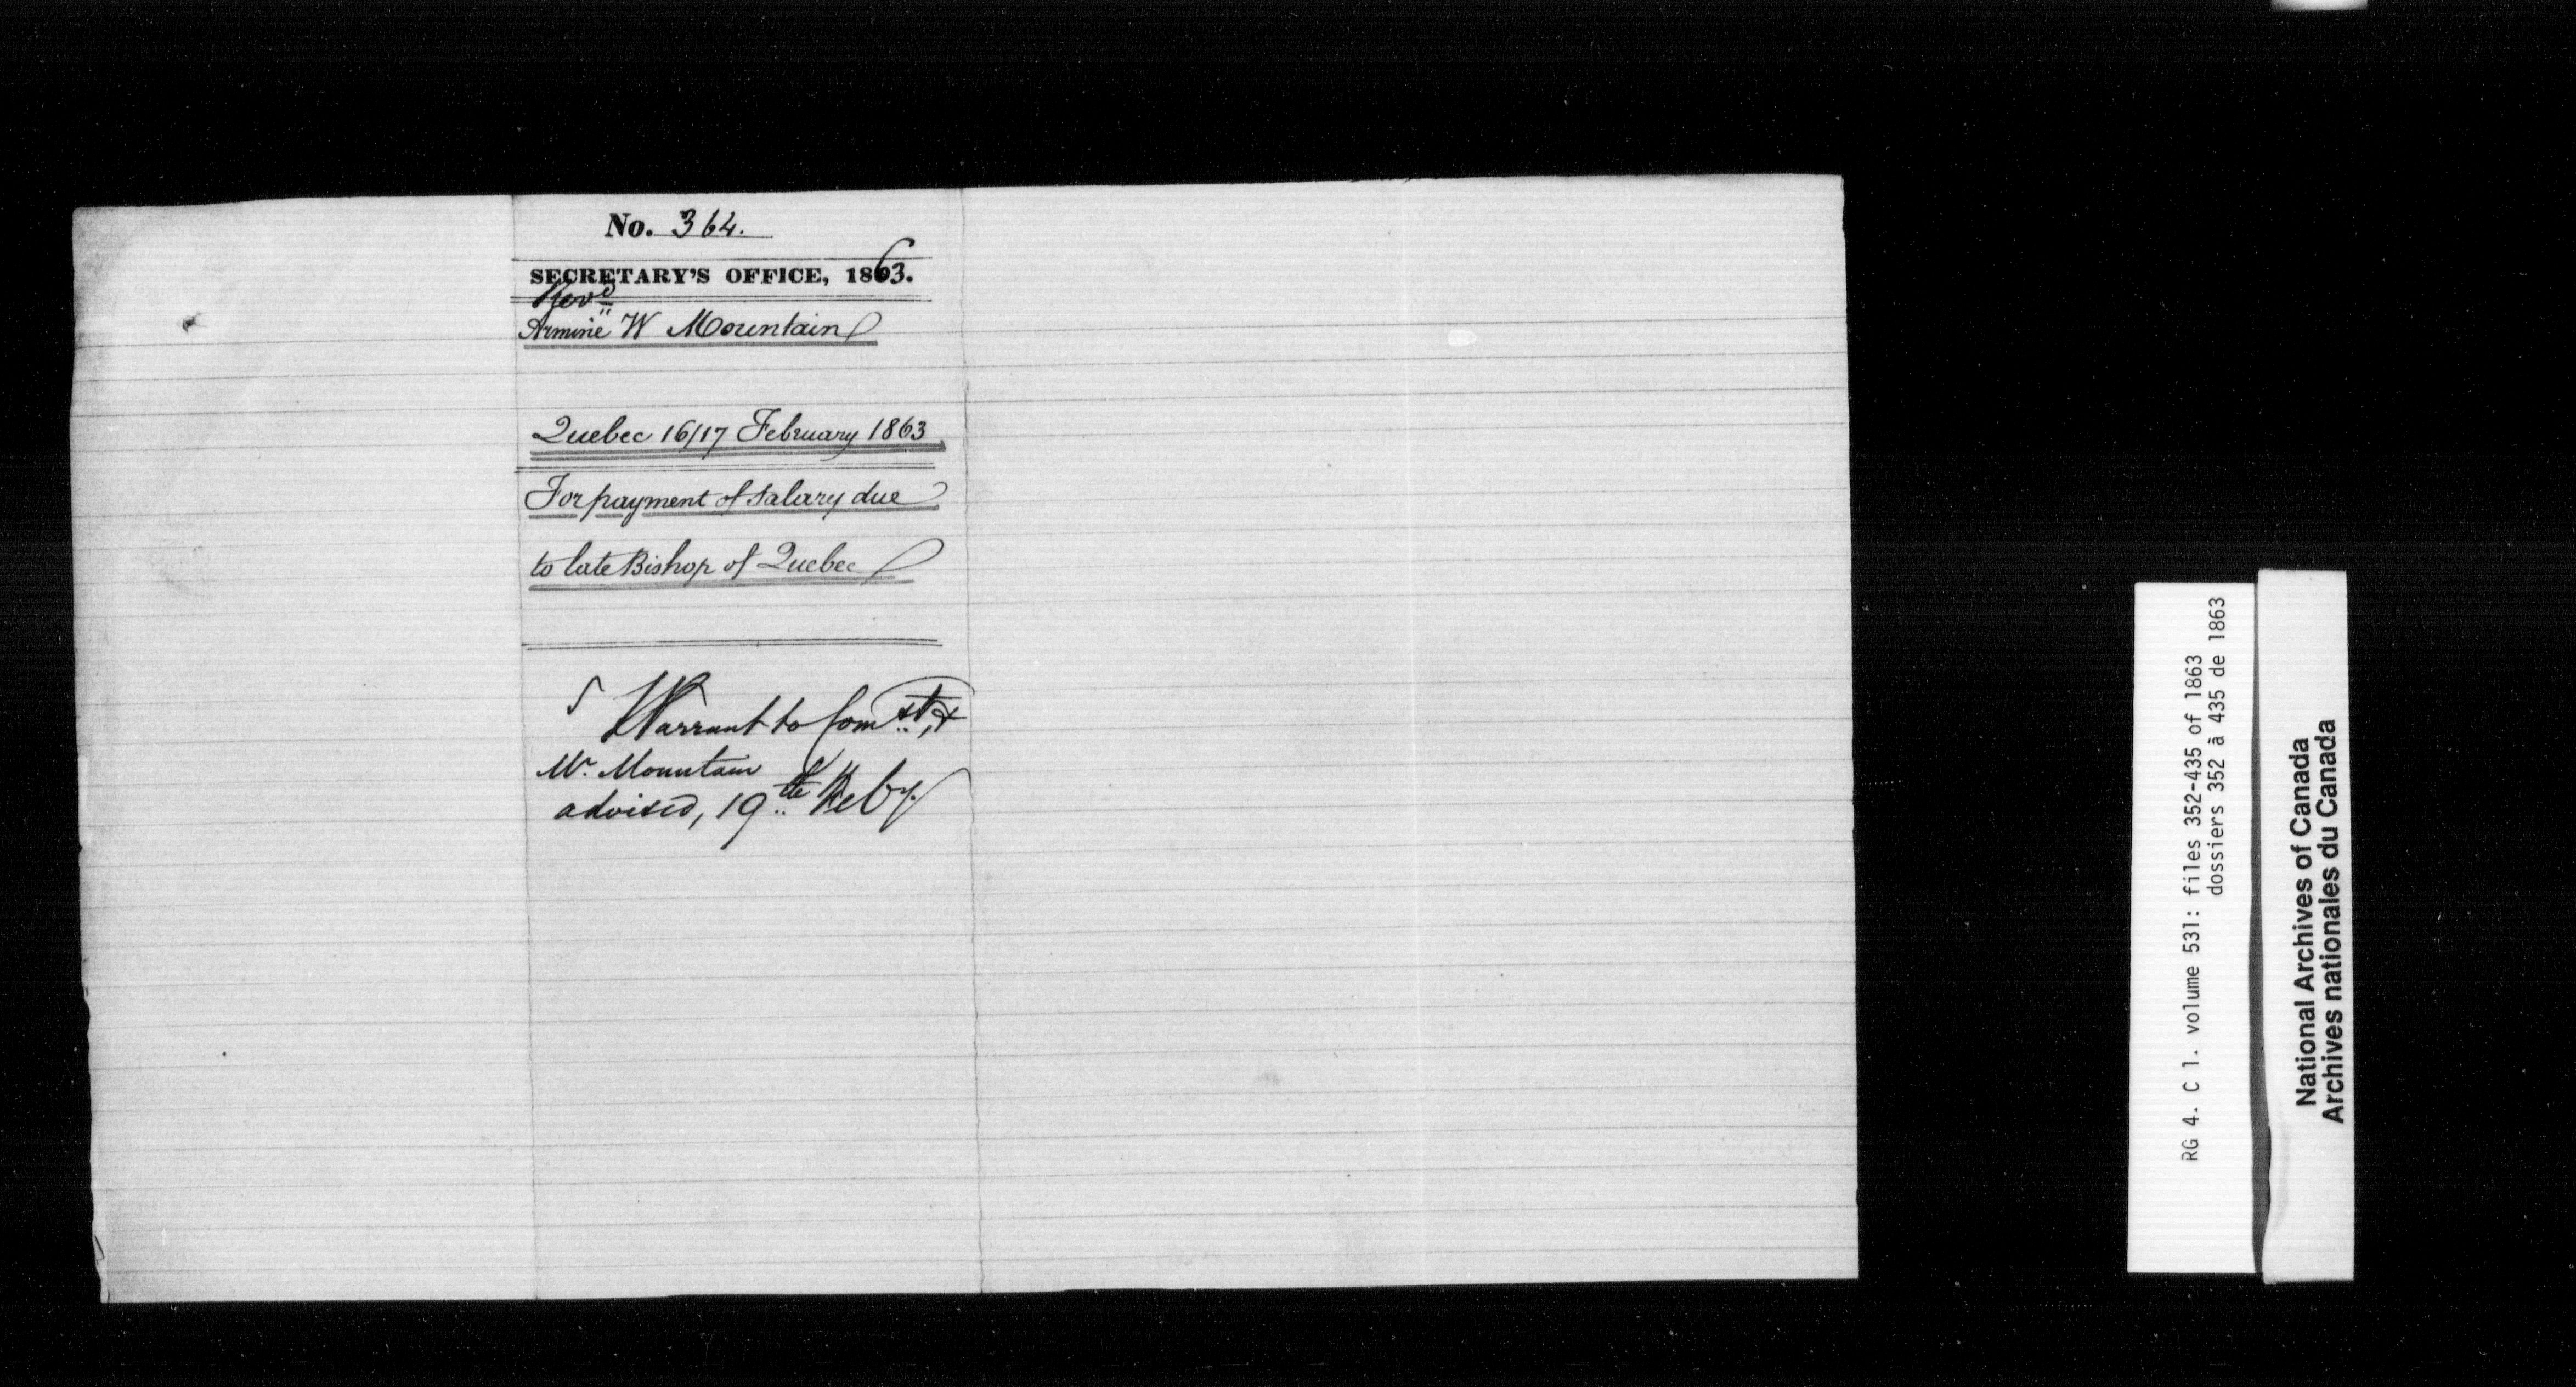 No. 364.
SECRETARY'S OFFICE, 1863.
Revd
Armine W Mountain
Quebec 16/17 February 1863
For payment of Salary due
to late Bishop of Quebec
Warrant to
Mr. Mountain
advised, 19th Feby.
RG 4. C 1. volume 531: files 352-435 of 1863
dossiers 352 à 435 de 1863
National Archives of Canada
Archives nationales du Canada